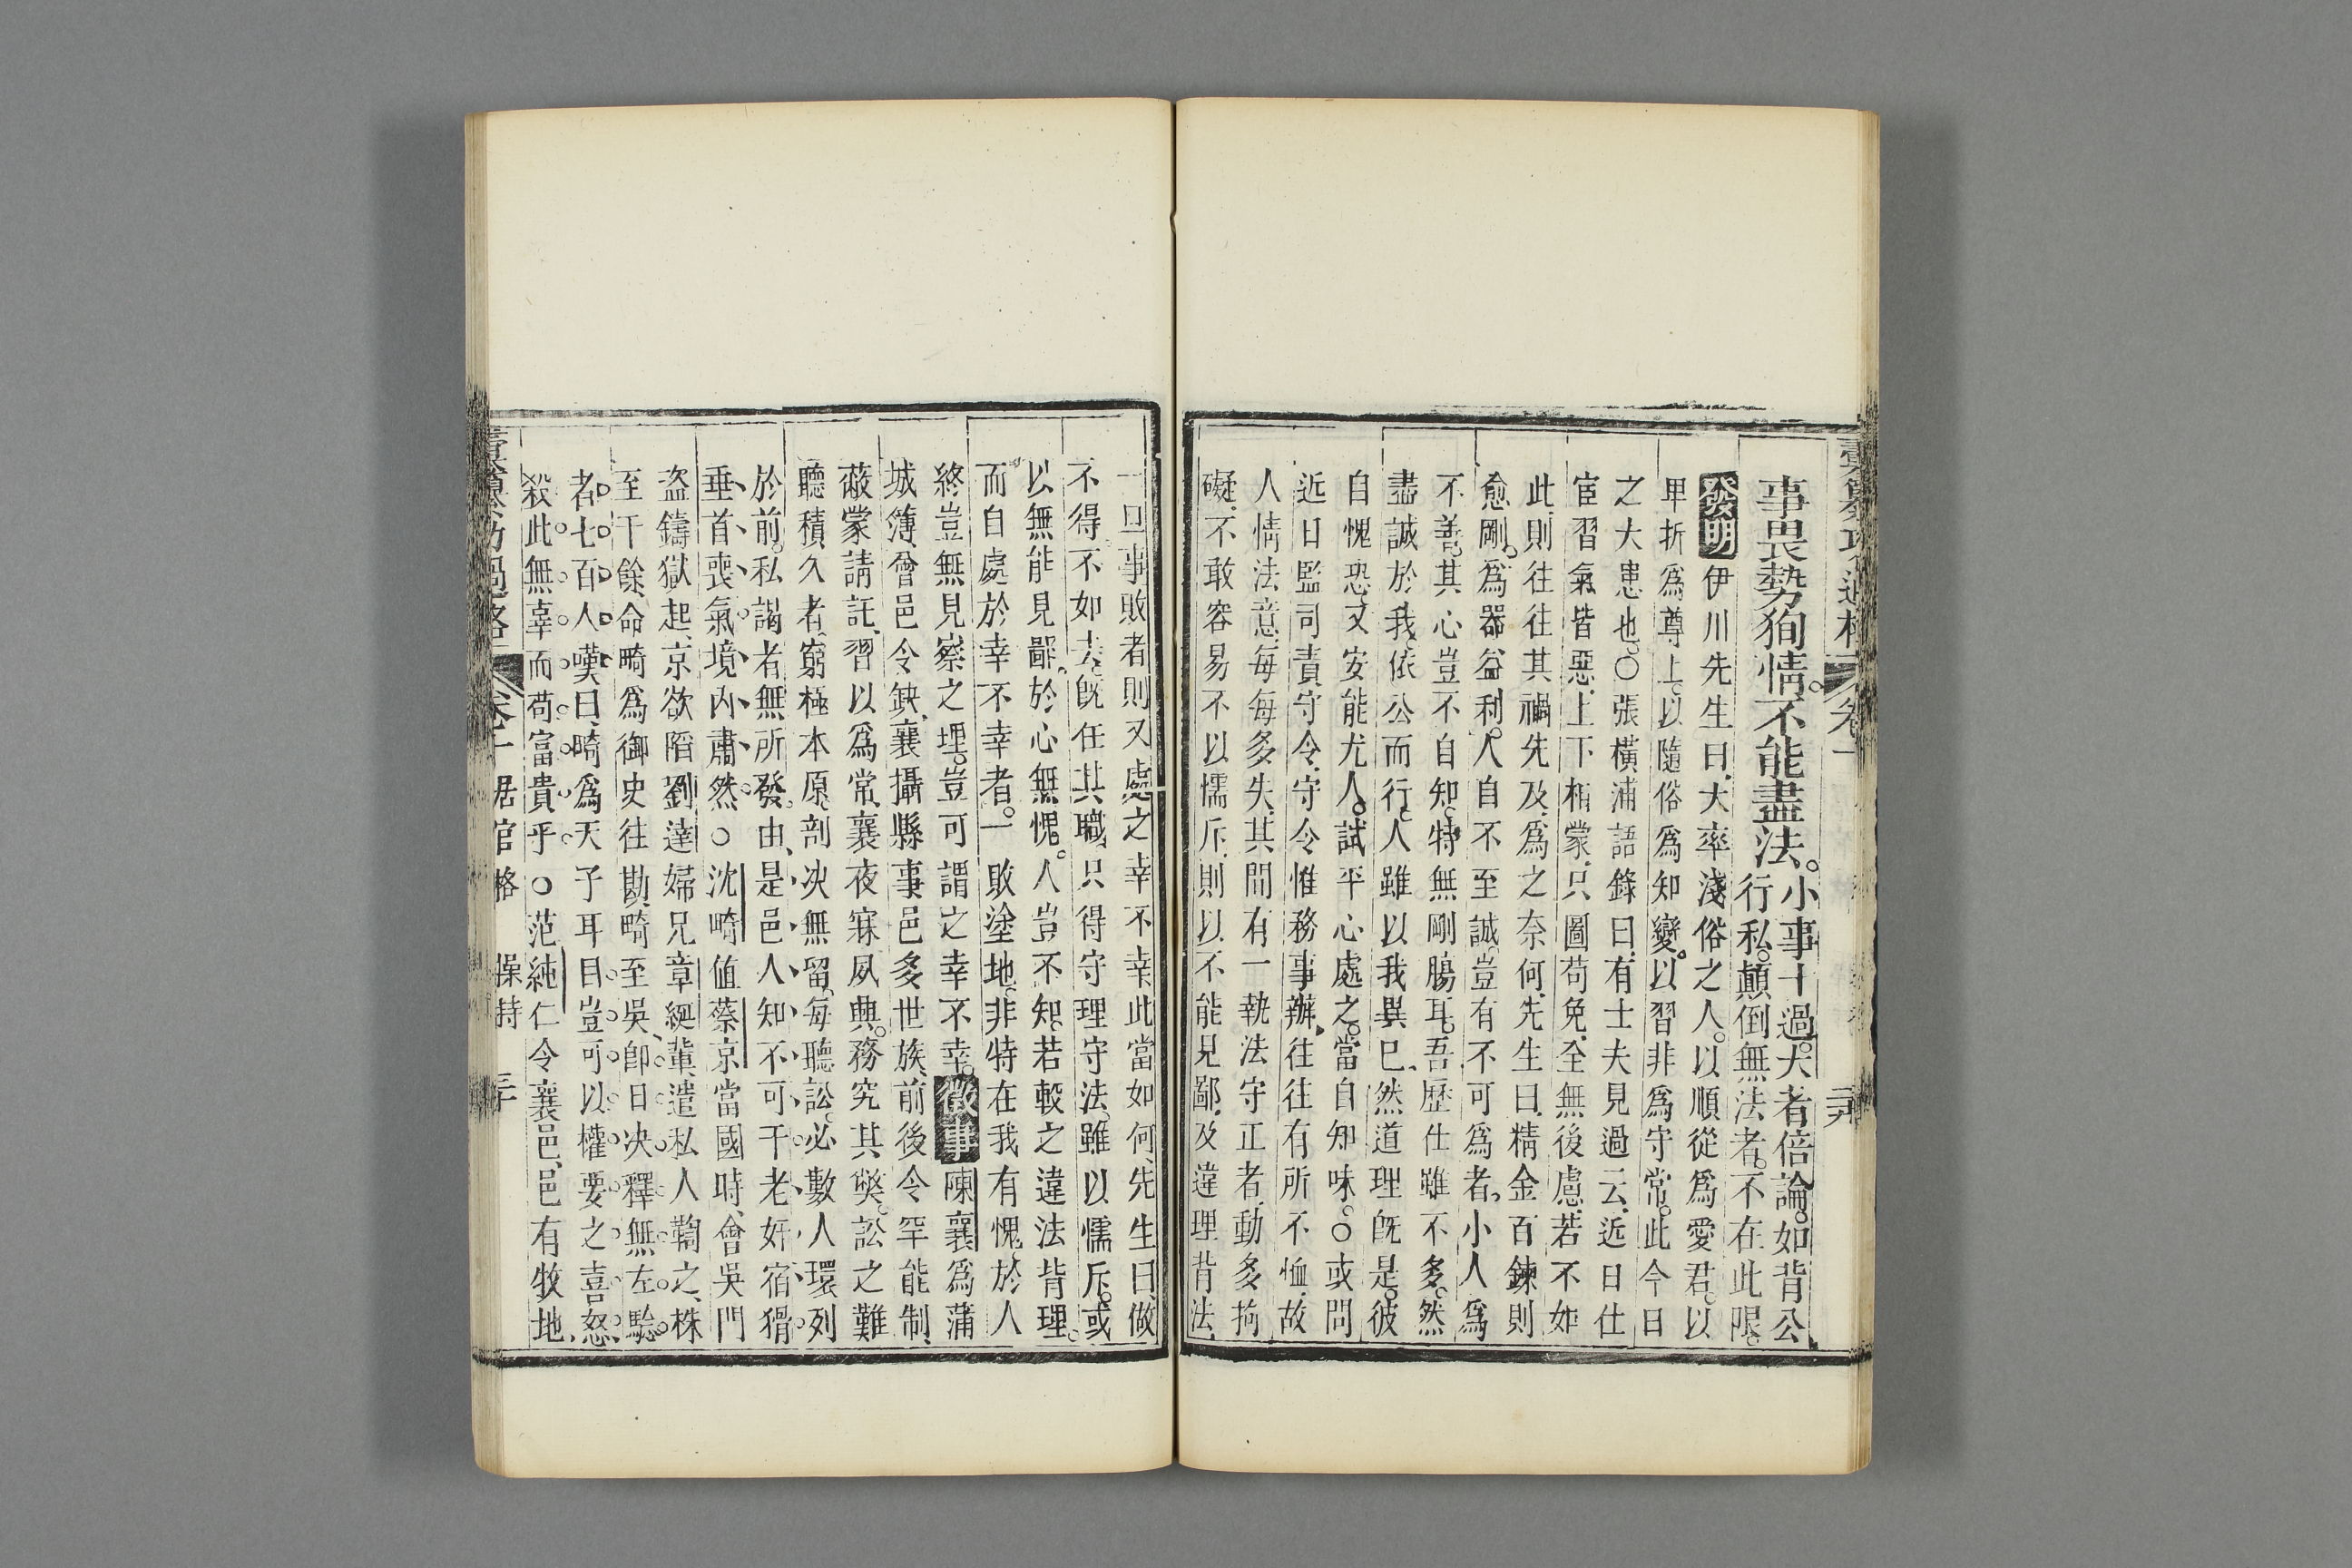 彙纂功過格 卷十
事畏勢狥情。不能盡法。小事十過。大者倍論。如背公
行私。顛倒無法者。不在此限。
發明 伊川先生曰、大率淺俗之人。以順從爲愛君。以
卑折爲尊上。以隨俗爲知變。以習非爲守常。此今日
之大患也。○張橫浦語錄曰、有士夫見過云、近日仕
宦習氣皆惡、上下相蒙、只圖苟免、全無後慮、若不如
此、則往往其禍先及、爲之奈何、先生曰、精金百鍊則
愈剛。爲器益利。人自不至誠。豈有不可爲者。小人爲
不善。其心豈不自知。特無剛膓耳。吾歷仕雖不多。然
盡誠於我。依公而行。人雖以我異巳、然道理旣是。彼
自愧恐。又安能尤人。試平心處之。當自知味。○或問
近日監司責守令、守令惟務事辦、往往有所不恤、故
人情法意、每每多失、其間有一執法守正者、動多拘
礙、不敢容易、不以懦斥、則以不能見鄙、及違理背法、
一旦事敗者、則又處之幸不幸、此當如何、先生曰、做
不得、不如去。旣任其職、只得守理守法。雖以懦斥。或
以無能見鄙。於心無愧。人豈不知。若較之違法背理。
而自處於幸不幸者。一敗塗地。非特在我有愧。於人
終豈無見察之理。豈可謂之幸不幸。徵事 陳襄爲蒲
城簿、會邑令缺、襄攝縣事、邑多世族、前後令罕能制、
蔽蒙請託、習以爲常、襄夜寐夙興。務究其獘。訟之難
聽積久者、窮極本原、剖决無留。每聽訟。必數人環列
於前。私謁者無所發。由是邑人知不可干、老奸宿猾
垂首喪氣、境內肅然。○沈畸值蔡京當國時、會吳門
盜鑄獄起、京欲陷劉逵婦兄章綖輩、遣私人鞫之、株
至千餘、命畸爲御史往勘、畸至吳、卽日决釋無左驗
者七百人、嘆曰、畸爲天子耳目、豈可以權要之喜怒、
殺此無辜、而苟富貴乎。○范純仁令襄邑、邑有牧地、
彙纂功過格 卷十 居官格 操持 三十